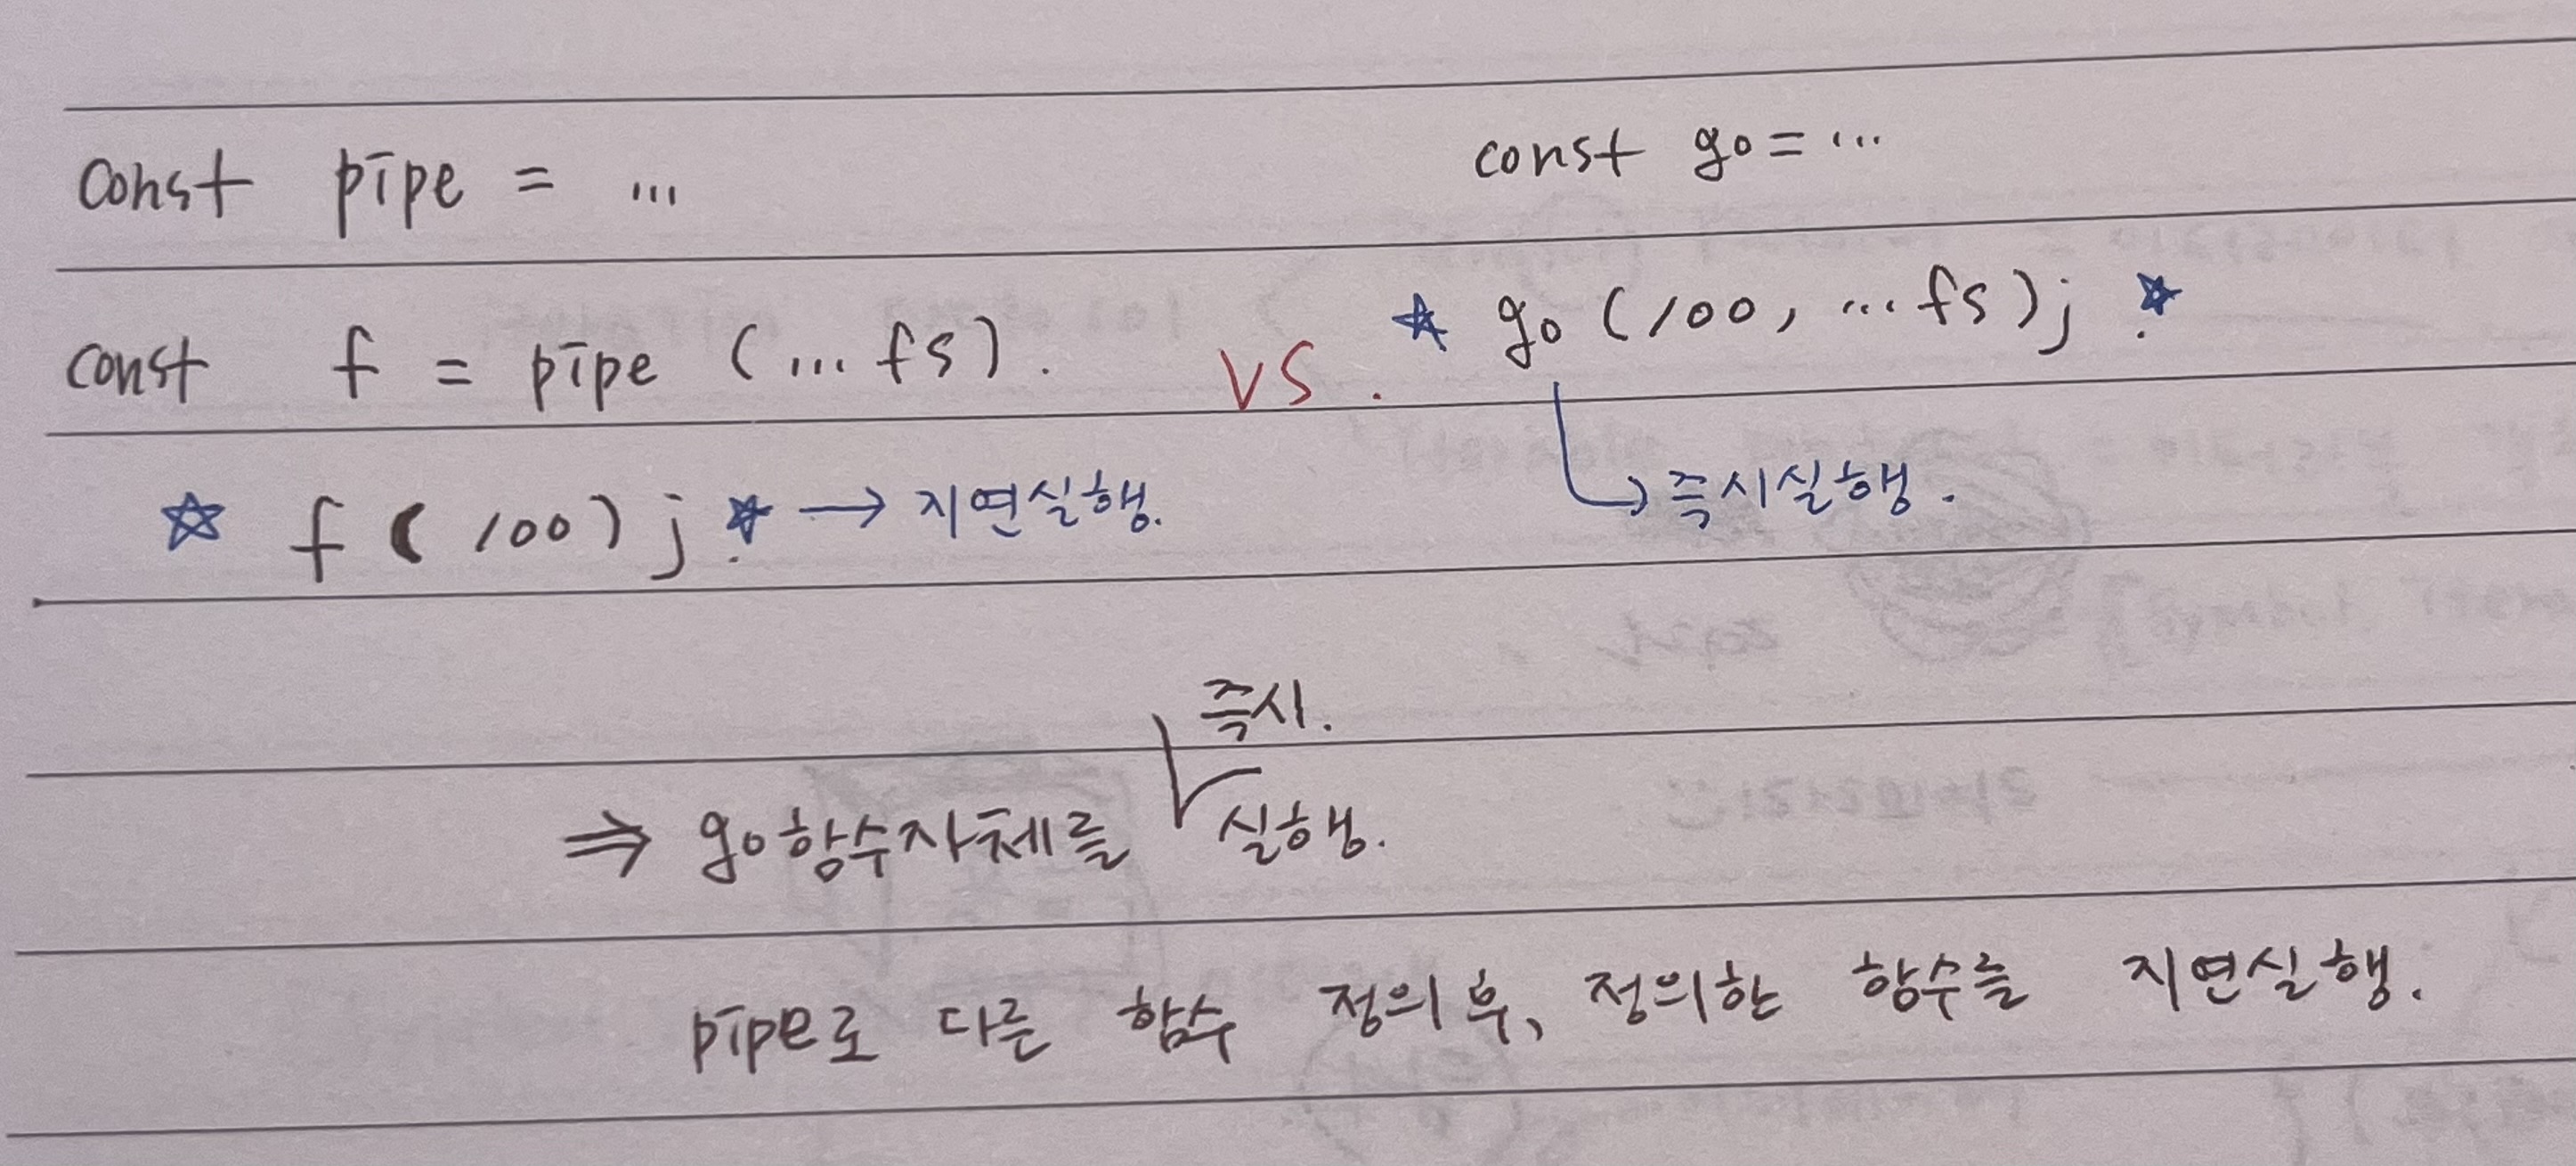 const pipe = ...
const f = pipe (...fs).
☆ f (100); ☆ → 지연실행.
vs.
const go = ...
☆ go (100, ...fs); ☆
↳ 즉시실행.
⇒ go함수자체를 ∨ 즉시. 실행.
pipe로 다른 함수 정의 후, 정의한 함수를 지연실행.